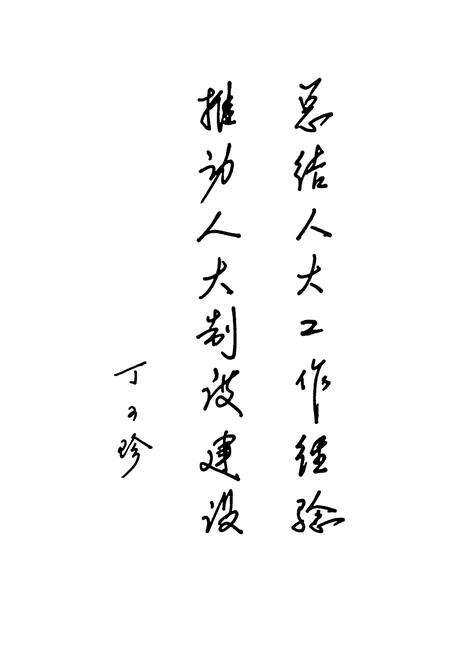 总结人大工作经验
推动人大制度建设
丁可珍